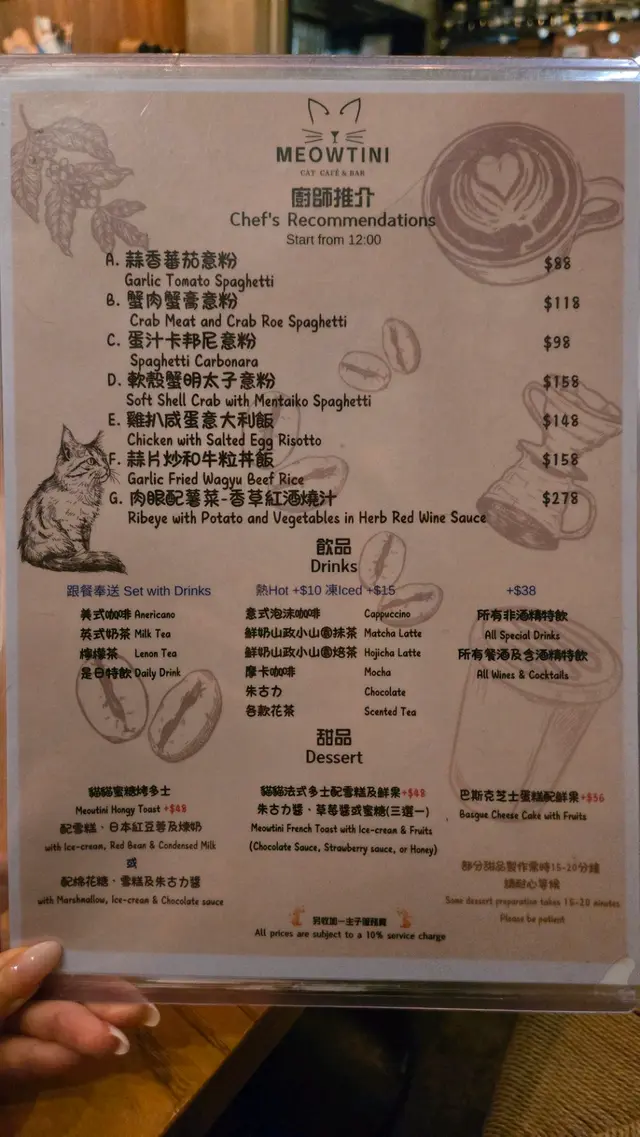 MEOWTINI
CAT CAFÉ & BAR
廚師推介
Chef's Recommendations
Start from 12:00
A. 蒜香蕃茄意粉 $88
Garlic Tomato Spaghetti
B. 蟹肉蟹膏意粉 $118
Crab Meat and Crab Roe Spaghetti
C. 蛋汁卡邦尼意粉 $98
Spaghetti Carbonara
D. 軟殼蟹明太子意粉 $158
Soft Shell Crab with Mentaiko Spaghetti
E. 雞扒咸蛋意大利飯 $148
Chicken with Salted Egg Risotto
F. 蒜片炒和牛粒丼飯 $158
Garlic Fried Wagyu Beef Rice
G. 肉眼配薯菜-香草紅酒燒汁 $278
Ribeye with Potato and Vegetables in Herb Red Wine Sauce
飲品
Drinks
跟餐奉送 Set with Drinks
美式咖啡 Anericano
英式奶茶 Milk Tea
檸檬茶 Lenon Tea
是日特飲 Daily Drink
熱Hot +$10 凍Iced +$15
意式泡沫咖啡 Cappuccino
鮮奶山政小山園抹茶 Matcha Latte
鮮奶山政小山園焙茶 Hojicha Latte
摩卡咖啡 Mocha
朱古力 Chocolate
各款花茶 Scented Tea
+$38
所有非酒精特飲
All Special Drinks
所有餐酒及含酒精特飲
All Wines & Cocktails
甜品
Dessert
貓貓蜜糖烤多士
Meowtini Hongy Toast +$48
配雪糕、日本紅豆蓉及煉奶
with Ice-cream, Red Bean & Condensed Milk
或
配棉花糖、雪糕及朱古力醬
with Marshmallow, Ice-cream & Chocolate sauce
貓貓法式多士配雪糕及鮮果+$48
朱古力醬、草莓醬或蜜糖(三選一)
Meowtini French Toast with Ice-cream & Fruits
(Chocolate Sauce, Strawberry sauce, or Honey)
巴斯克芝士蛋糕配鮮果+$36
Basque Cheese Cake with Fruits
部分甜品製作需時15-20分鐘
請耐心等候
Some dessert preparation takes 15-20 minutes
Please be patient
另收加一主子服務費
All prices are subject to a 10% service charge